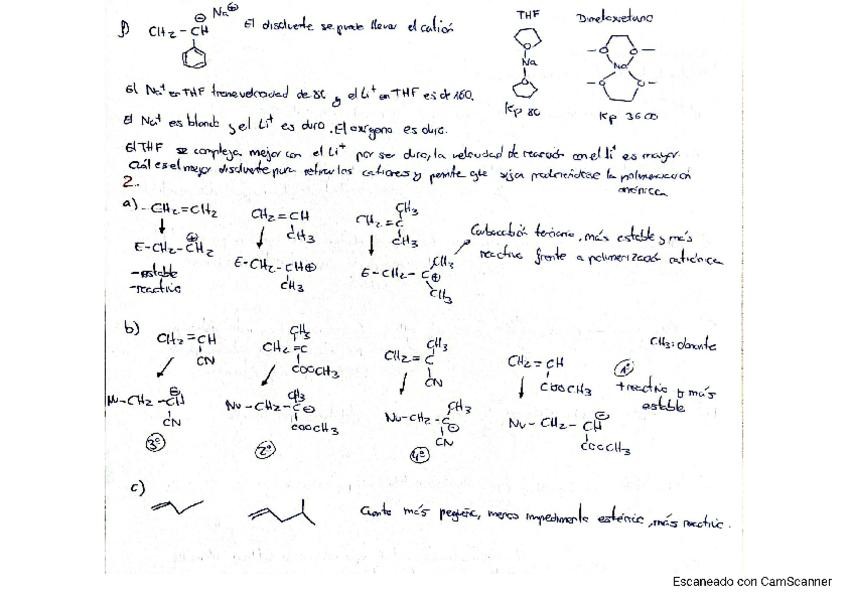 f) CH2 - CH⊖ Na⊕ El disolvente se puede llevar el catión THF Dimetoxietano
Na Na
Kp 80 Kp 3600
El Na+ en THF tiene velocidad de 80 y el Li+ en THF es de 160.
El Na+ es blando y el Li+ es duro. El oxígeno es duro.
El THF se compleja mejor con el Li+ por ser duro, la velocidad de reacción con el li+ es mayor.
Cuál es el mejor disolvente para retirar los cationes y permite que siga produciéndose la polimerización
aniónica
2.
a) - CH2=CH2 CH2=CH CH3 CH2=C CH3 CH3
E-CH2-CH2⊕ E-CH2-CH⊕ CH3 E-CH2-C⊕ CH3 CH3
-estable
-reactivo
Carbocatión terciario, más estable y más
reactivo frente a polimerización catiónica
b) CH2=CH CN CH2=C CH3 COOCH3 CH2=C CH3 CN CH2=CH COOCH3 CH3: donante
1º
+reactivo y más
estable
Nu-CH2-CH⊖ CN Nu-CH2-C⊖ CH3 COOCH3 Nu-CH2-C⊖ CH3 CN Nu-CH2-CH⊖ COOCH3
3º 2º 4º
c) Cuanto más pequeño, menos impedimento estérico, más reactivo.
Escaneado con CamScanner